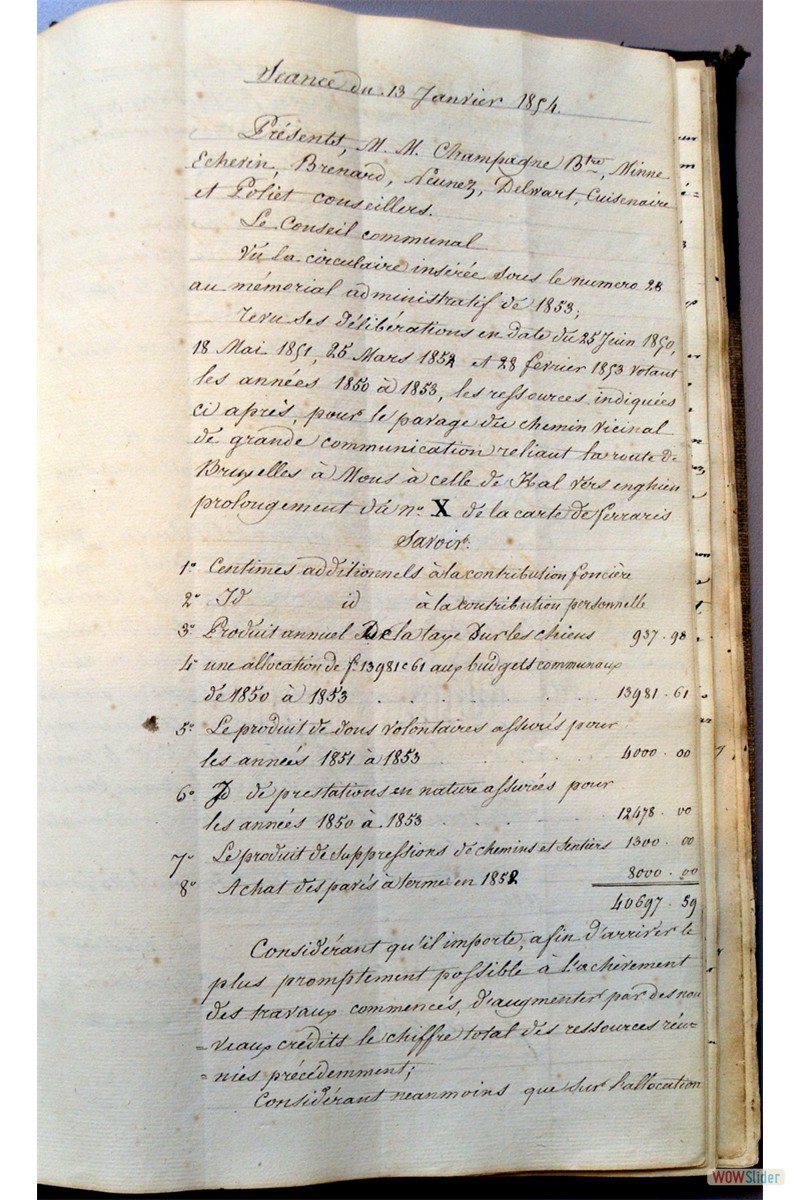 Séance du 13 Janvier 1854.
Présents, M. M. Champagne Btre, Minne
Echevin, Brenard, Neunez, Delwart, Cuisenaire
et Poliet conseillers.
Le Conseil communal
Vu la circulaire insérée sous le numero 28
au mémorial administratif de 1853;
revu ses délibérations en date du 25 Juin 1850,
18 Mai 1851, 25 Mars 1852 et 28 fevrier 1853 votant
les années 1850 à 1853, les ressources indiquées
ci après, pour le pavage du chemin vicinal
de grande communication reliant la route de
Bruxelles à Mons à celle de Hal vers enghien
prolongement du no. X de la carte de ferraris
Savoir:
1o Centimes additionnels à la contribution foncière
2o Id id à la contribution personnelle
3o Produit annuel De la taxe sur les chiens 937.98
4o une allocation de f. 13981 c 61 aux budgets communaux
de 1850 à 1853 . . . . . . . 13981.61
5o Le produit de dons volontaires assurés pour
les années 1851 à 1853 . . . . . 4000.00
6o Id de prestations en nature assurées pour
les années 1850 à 1853 . . . . . 12478.00
7o Le produit de suppressions de chemins et sentiers 1300.00
8o Achat des pavés à terme en 1852 8000.00
40697.59
Considérant qu'il importe, afin d'arriver le
plus promptement possible à l'achèvement
des travaux commencés, d'augmenter par des nou
=veaux crédits le chiffre total des ressources réu=
=nies précédemment;
Considérant neanmoins que sur l'allocation
WOWSlider